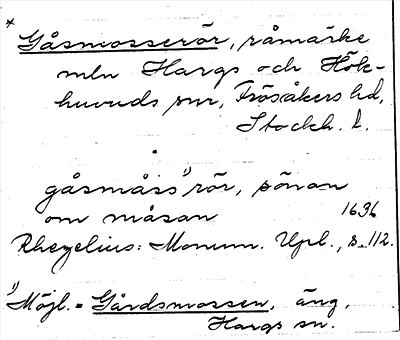 * Gåsmosserör, råmärke
mln Hargs och Hök-
huvuds snr, Frösåkers hd,
Stockh. l.
gåsmåss¹⁾ rör, sönan
om måsan 1636
Rhezelius: Monum. Upl., s. 112.
¹⁾ Möjl. = Gårdsmossen, äng,
Hargs sn.